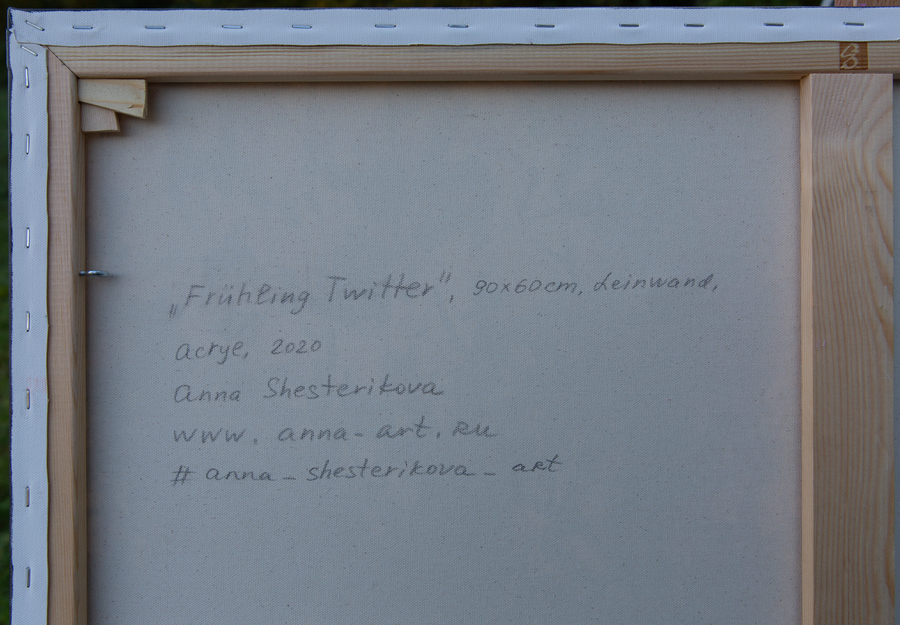 „Frühling Twitter", 90x60cm, Leinwand,
Acrye, 2020
Anna Shesterikova
www.anna-art.ru
# anna_shesterikova_art